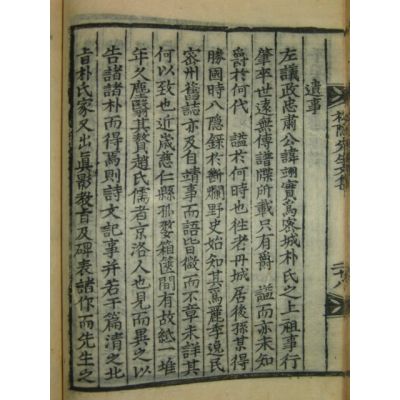 松隱先生文集
遺事
左議政忠肅公諱翊實爲密城朴氏之上祖事行
肇卒世遠無傳諸牒所載只有爵 謚而亦未知
爵於何代 謚於何時也往老丹城居後孫某得
勝國時八隱錄於斷爛野史始知其爲麗季逸民
密州舊誌亦及自靖事而語皆微而不章未詳其
何以致也近歲慈仁縣孤嫠箱篋間有故紙一堆
年久塵翳其贅趙氏儒者京洛人也見而異之以
告諸諸朴而得焉則詩文記事并若干篇清之北
旨朴氏家又出眞影敎旨及碑表諸作而先生之